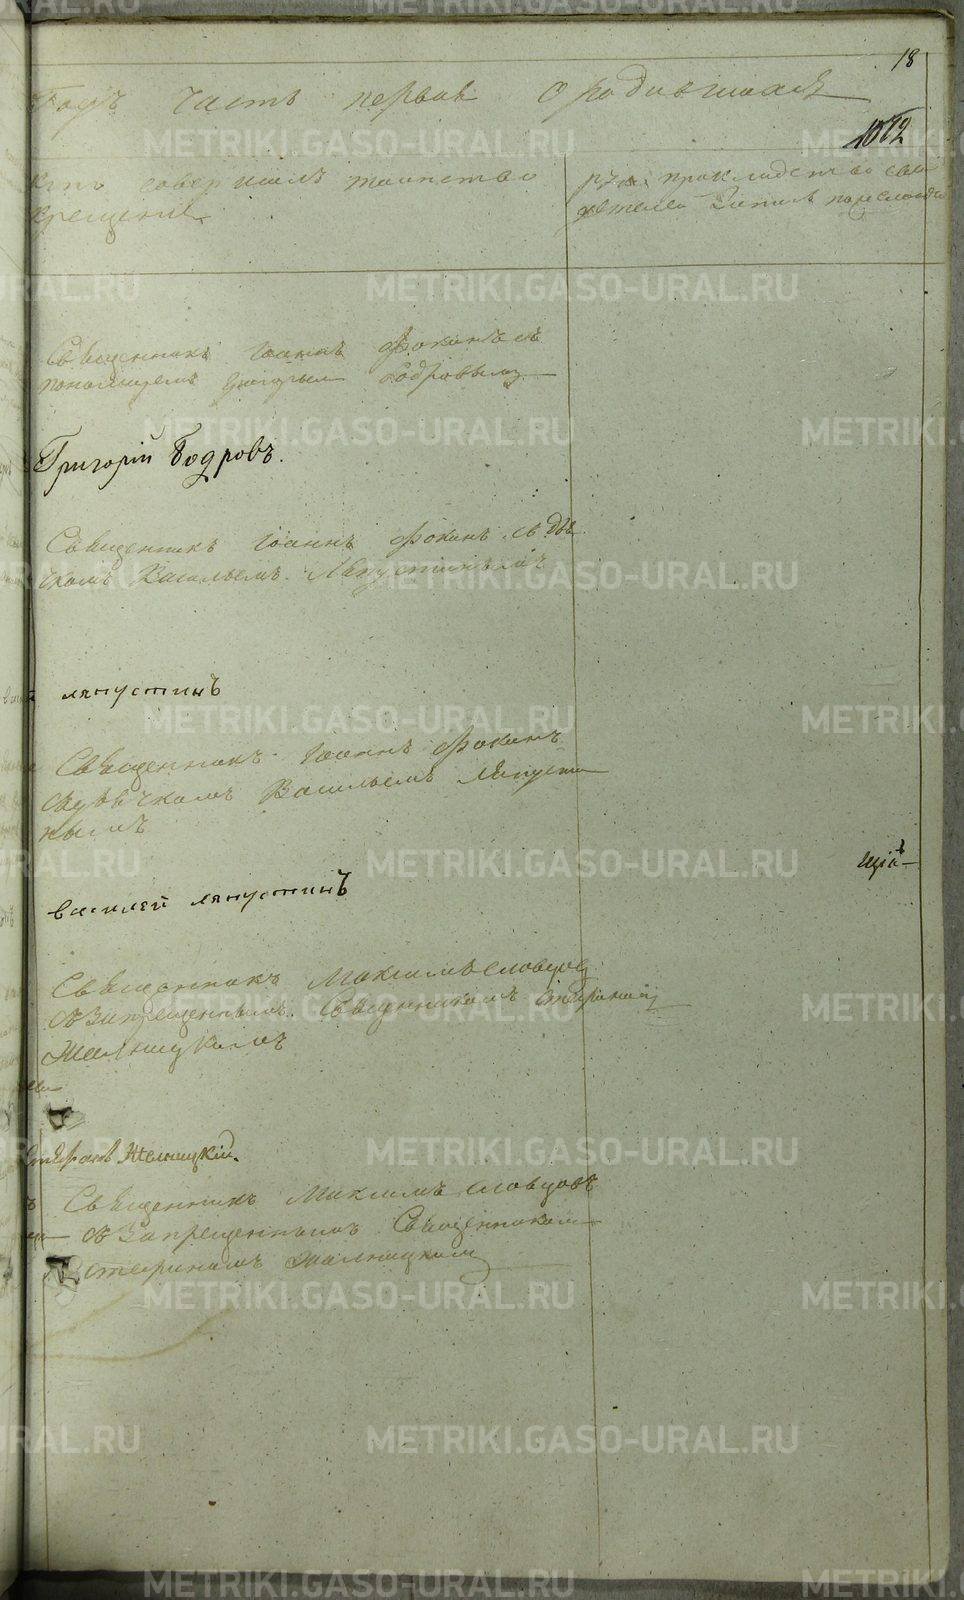 18
Годъ часть первая о родившихся
1012
кто совершалъ таинство
крещенiя
рукоприкладство сви
дѣтелей записи по желанiю
Священникъ Iоаннъ Фокинъ съ
пономаремъ Григорьем Бодровымъ
Григорiй Бодровъ.
Священникъ Iоаннъ Фокинъ съ дья
чкомъ Васильемъ Ляпустинымъ
ляпустинъ
Священникъ Iоаннъ Фокинъ
съ дьячкомъ Васильемъ Ляпусти
нымъ
василей ляпустинъ
Священникъ Максимъ Словцовъ
съ Запрещеннымъ Священникомъ Стефаномъ
Жельницкимъ
Стефанъ Жельницкiй.
Священникъ Максимъ Словцовъ
съ Запрещеннымъ Священникомъ
Стефаномъ Жельницкимъ
METRIKI.GASO-URAL.RU